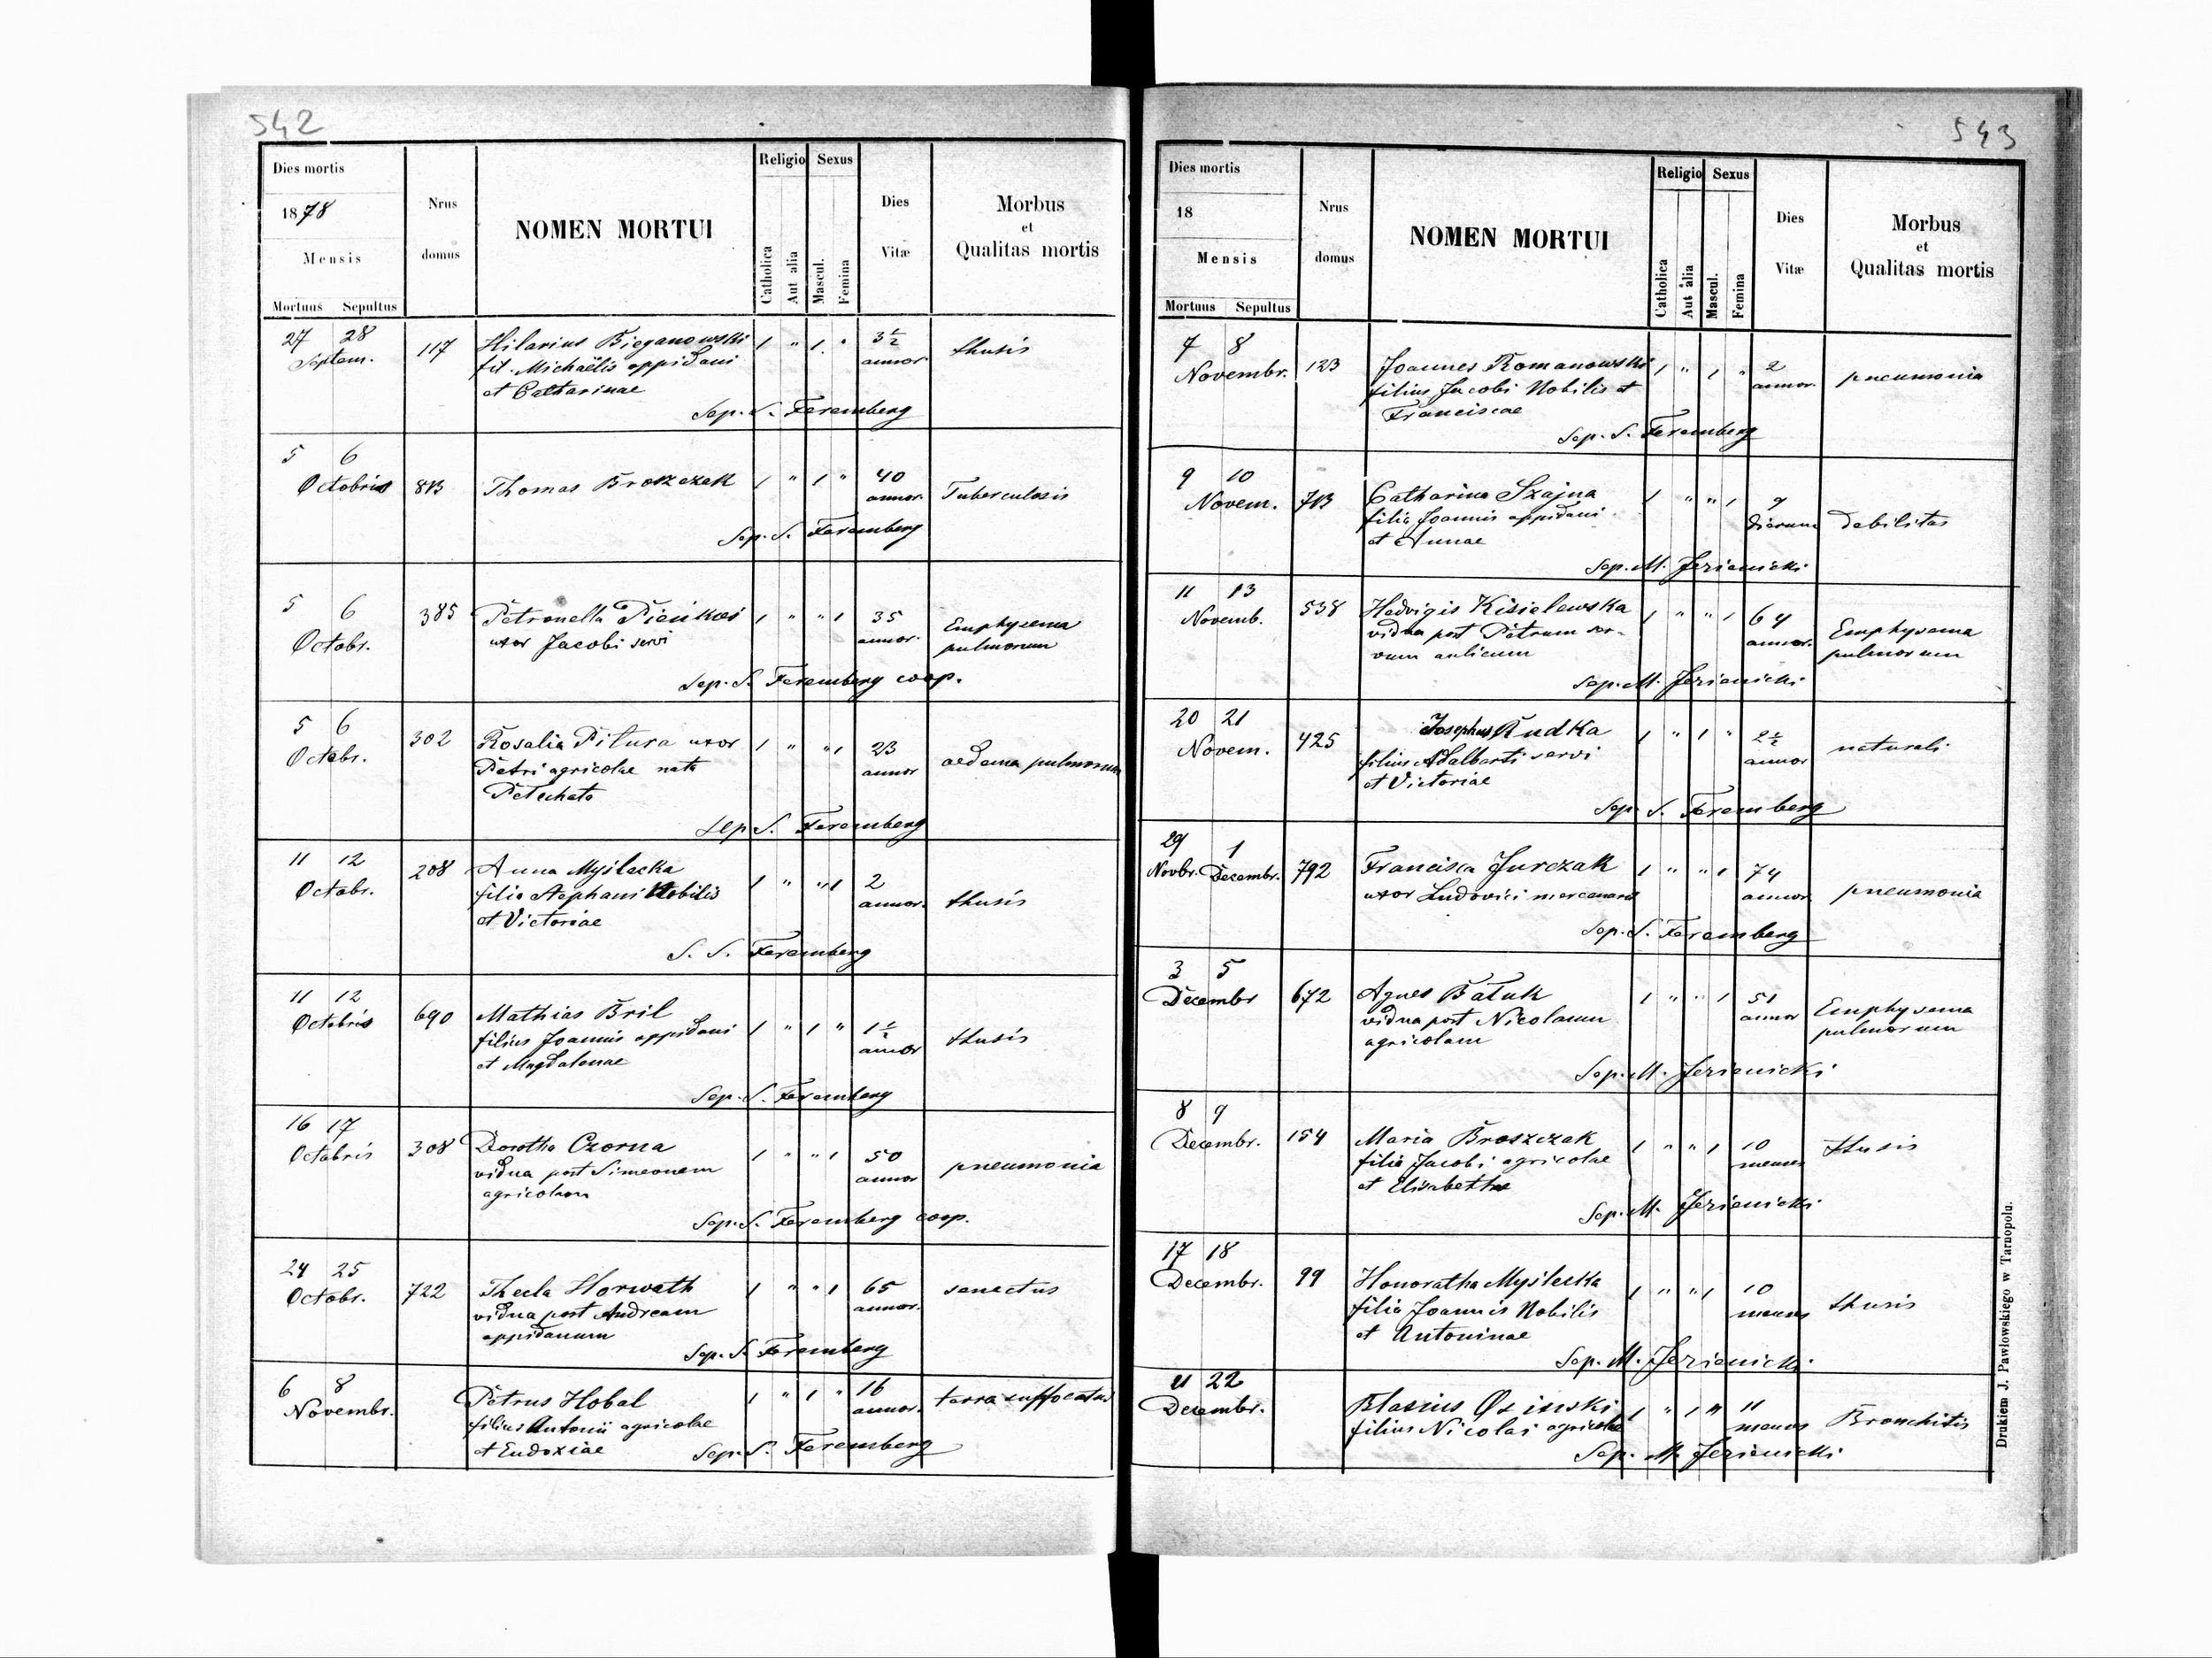 542
Dies mortis
1878
Mensis
Mortuus Sepultus
Nrus
domus
NOMEN MORTUI
Religio
Catholica
Aut alia
Sexus
Mascul.
Femina
Dies
Vitæ
Morbus
et
Qualitas mortis
27 28
Septem.
117
Hilarius Bieganowski
fil. Michaëlis oppidani
et Catharinae
1 " 1. "
3½
annor
thusis
Sep. S. Feremberg
5 6
Octobris
813
Thomas Broszczak
1 " 1 "
40
annor.
Tuberculosis
Sep. S. Feremberg
5 6
Octobr.
385
Petronella
uxor Jacobi servi
1 " " 1
35
annor.
Emphysema
pulmonum
Sep. S. Feremberg coop.
5 6
Octobr.
302
Rosalia Pitura uxor
Petri agricolae nata
1 " " 1
23
annor
oedema pulmonum
Sep S. Feremberg
11 12
Octobr.
208
Anna Myślecka
filia Stephani Nobilis
et Victoriae
1 " " 1
2
annor.
thusis
S. S. Feremberg
11 12
Octobris
690
Mathias Bril
filius Joannis oppidani
et Magdalenae
1 " 1 "
1½
annor
thusis
Sep. S. Feremberg
16 17
Octobris
308
Dorotha Czorna
vidua post Simeonem
agricolam
1 " " 1
50
annor
pneumonia
Sep. S. Feremberg coop.
24 25
Octobr.
722
Thecla Horwath
vidua post Andream
oppidanum
1 " " 1
65
annor.
senectus
Sep. S. Feremberg
6 8
Novembr.
Petrus Hobal
filius Antonii agricolae
et Eudoxiae
1 " 1 "
16
annor.
terra suffocatus
Sep. S. Feremberg
543
Dies mortis
18
Mensis
Mortuus Sepultus
Nrus
domus
NOMEN MORTUI
Religio
Catholica
Aut alia
Sexus
Mascul.
Femina
Dies
Vitæ
Morbus
et
Qualitas mortis
7 8
Novembr.
123
Joannes Romanowski
filius Jacobi Nobilis et
Franciscae
1 " 1 "
2
annor.
pneumonia
Sep. S. Feremberg
9 10
Novem.
713
Catharina Szajna
filia Joannis oppidani
et Annae
1 " " 1
dierum
debilitas
Sep. M. Jezienicki
11 13
Novemb.
538
Hedvigis Kisielewska
vidua post Petrum ser-
vum aulicum
1 " " 1
64
annor.
Emphysema
pulmorum
Sep. M. Jezienicki
20 21
Novem.
425
Josephus Rudka
filius Adalberti servi
et Victoriae
1 " 1 "
2½
annor
naturali
Sep. S. Feremberg
29 1
Novbr. Decembr.
792
Francisca Jurczak
uxor Ludovici mercenarii
1 " " 1
74
annor
pneumonia
Sep. S. Feremberg
3 5
Decembr
672
Agnes Bałuk
vidua post Nicolaum
agricolam
1 " " 1
51
annor
Emphysema
pulmorum
Sep. M. Jezienicki
8 9
Decembr.
154
Maria Broszczak
filia Jacobi agricolae
et Elisabethae
1 " " 1
10
menses
thusis
Sep. M. Jezienicki
17 18
Decembr.
99
Honoratha Myślecka
filia Joannis Nobilis
et Antoninae
1 " " 1
10
menses
thusis
Sep. M. Jezienicki
21 22
Decembr.
Blasius Osinski
filius Nicolai agricolae
1 " 1 "
11
menses
Bronchitis
Sep. M. Jezienicki
Drukiem J. Pawłowskiego w Tarnopolu.